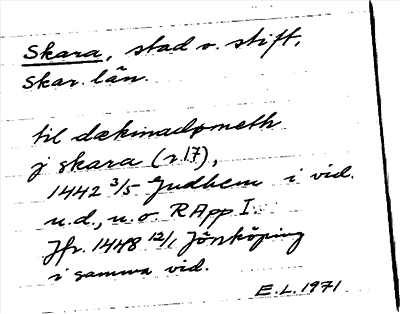 Skara, stad o. stift,
Skar. län.
til dækinadømeth
j skara (r. 17),
1442 3/5 Gudhem i vid.
u.d., u.o RApp I.
Jfr. 1448 12/1 Jönköping
i samma vid.
E.L. 1971